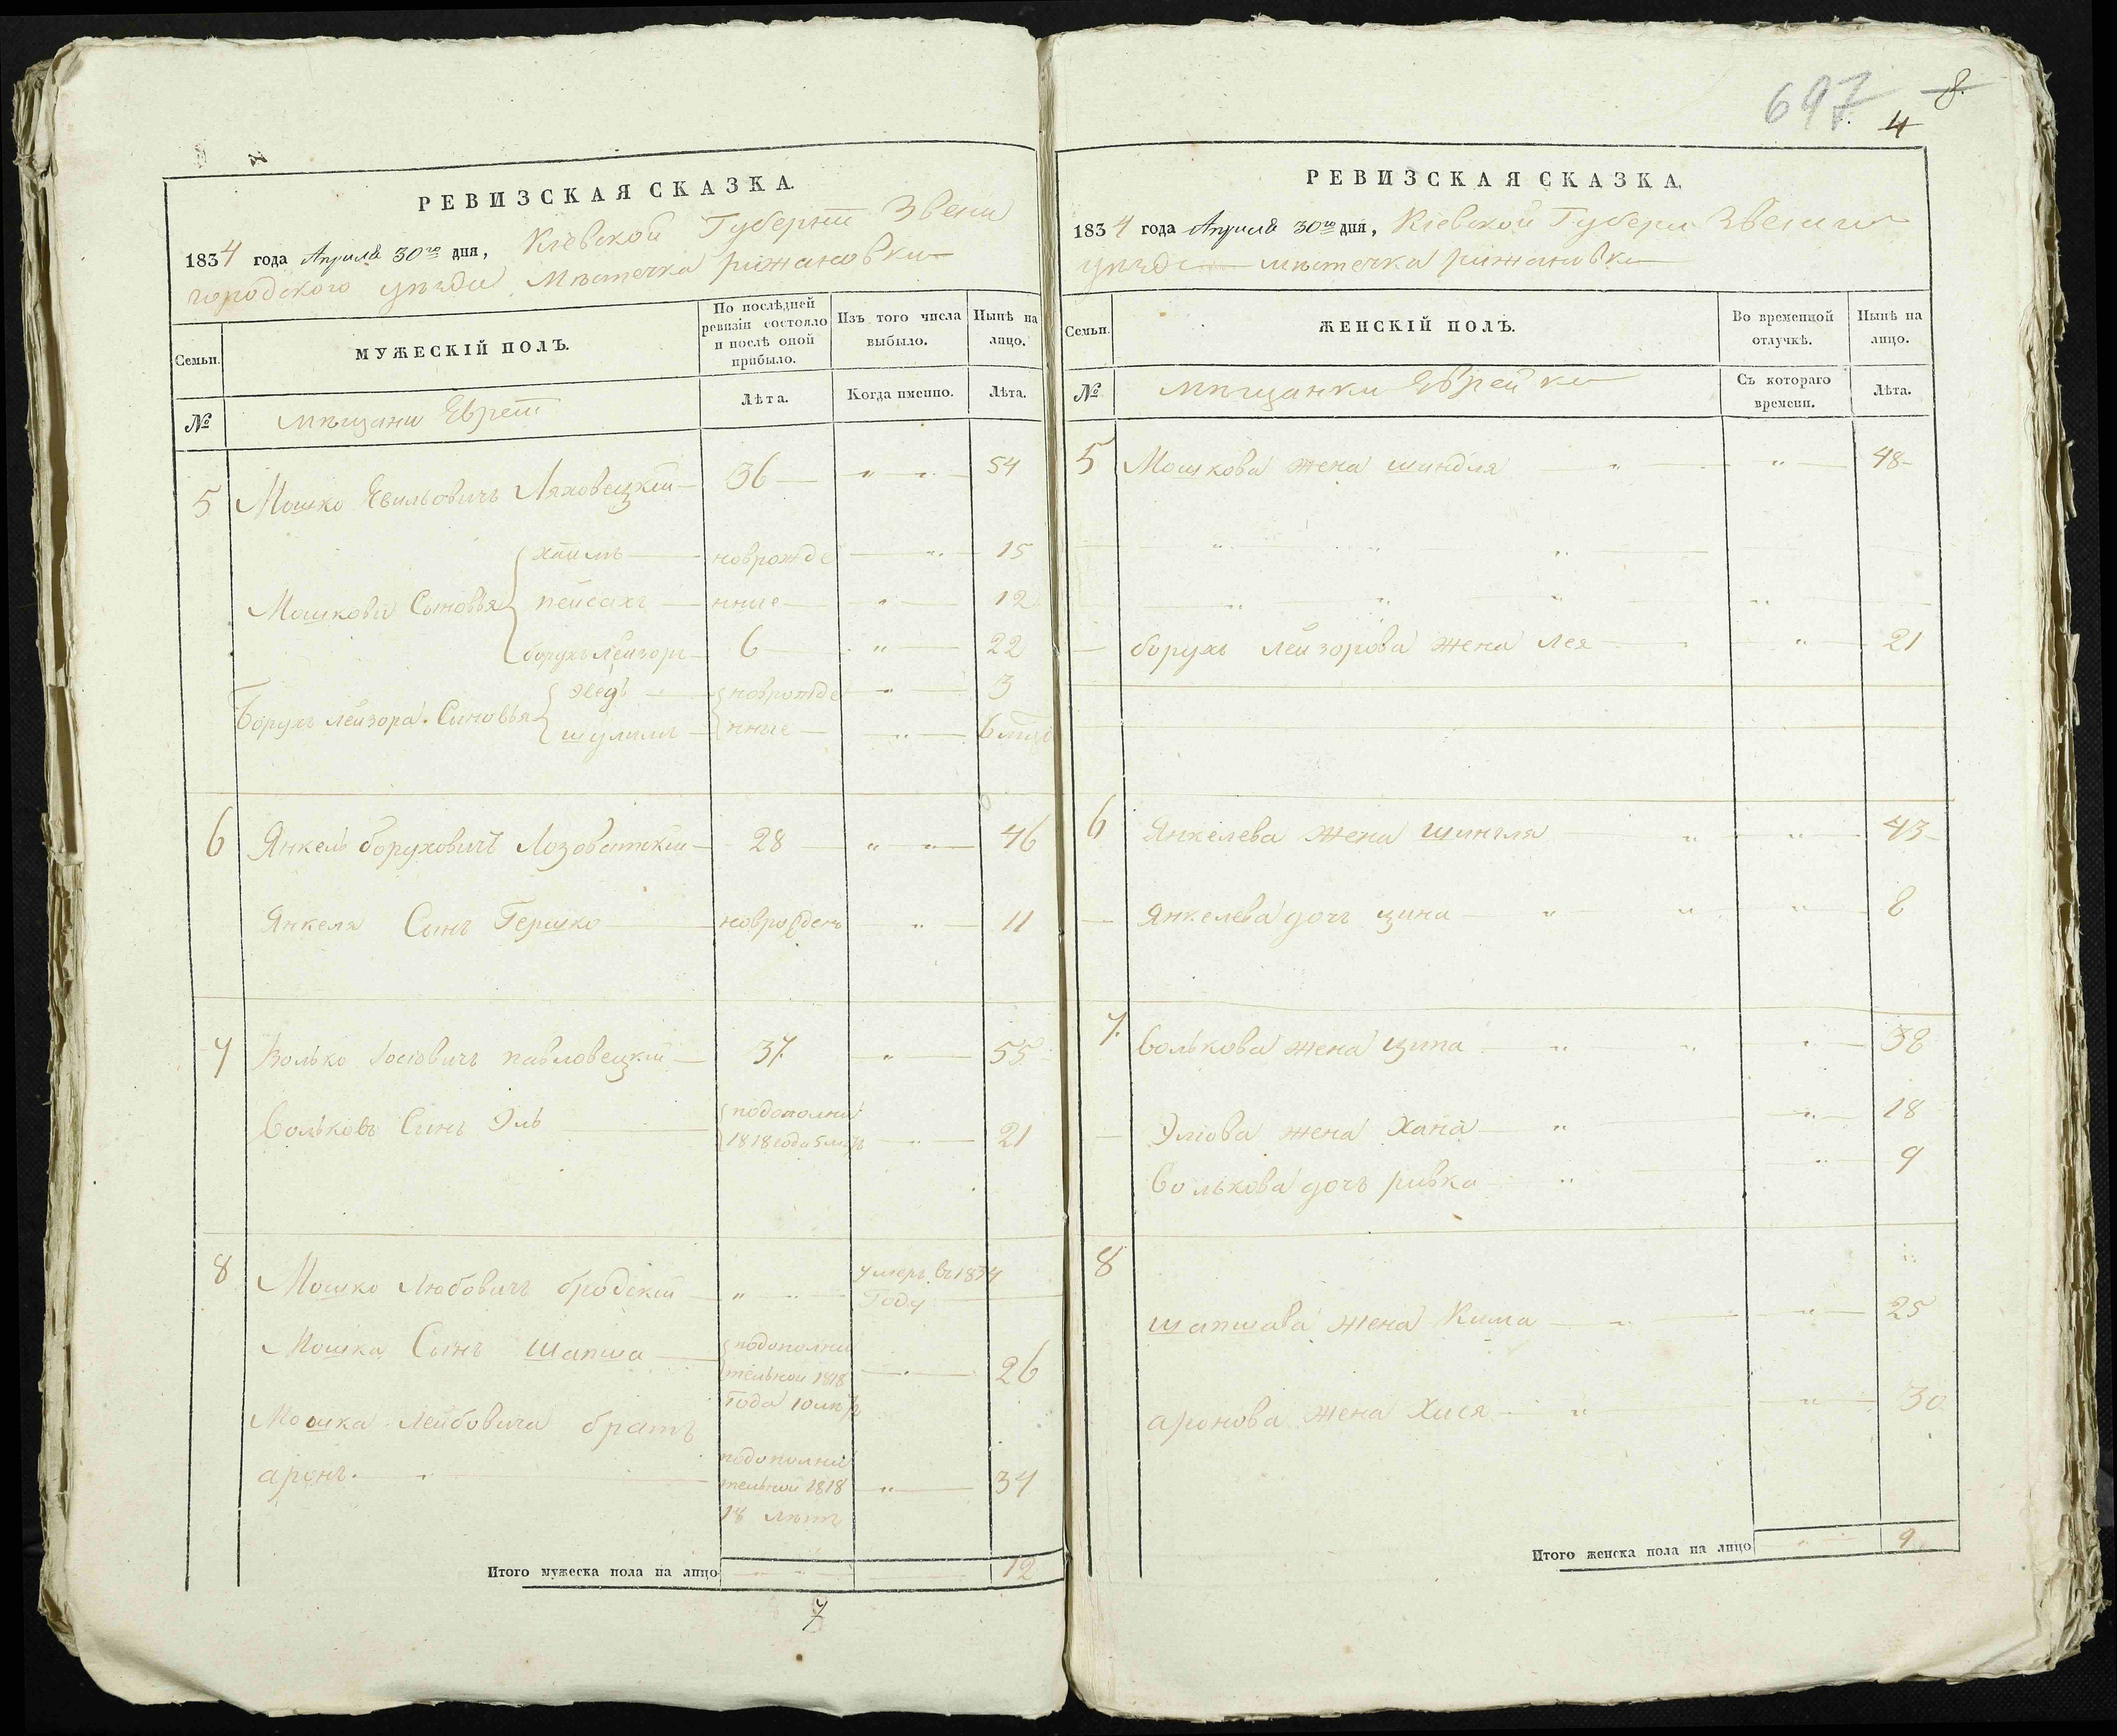 РЕВИЗСКАЯ СКАЗКА.
1834 года Апрѣля 30го дня, Кіевской Губерніи Звени
городского уѣзда мѣстечка рижановки
Семьи.
МУЖЕСКІЙ ПОЛЪ.
По послѣдней
ревизіи состояло
и послѣ оной
прибыло.
Изъ того числа
выбыло.
Нынѣ на
лицо.
№
мѣщани Евреи
Лѣта.
Когда именно.
Лѣта.
5 Мошко Ляховецкій 36 „ „ 54
хаимъ новрожде „ 15
Мошкови Сыновья пейсахъ нные „ 12
борухъ лейзоръ 6 „ 22
новрожде „ 3
Борухъ лейзора Сыновья
шулимъ нные „ 6
6 Янкель боруховичъ Лозоватскій 28 „ „ 46
Янкеля Сынъ Гершко новрожденъ „ 11
7 Волько Іосіовичъ павловецкій 37 „ 55
Вольковъ Сынъ Эль
подополни
1818 года 5 „ 21
8 Мошко Любовичъ бродскій „ „
умеръ въ 1834
Году
Мошка Сынъ Шапша
подополни
тельной 1818 „ 26
Года 10
Мошка Лейбовича братъ
аронъ.
подополни
тельной 1818 „ 34
18 лѣтъ
Итого мужеска пола на лицо 12
7
697 8.
4
РЕВИЗСКАЯ СКАЗКА.
1834 года Апрѣля 30го дня, Кіевской Губерн Звениго
уѣзда мѣстечка рижановки
Семьи.
ЖЕНСКІЙ ПОЛЪ.
Во временной
отлучкѣ.
Нынѣ на
лицо.
№
мѣщанки Еврейки
Съ котораго
времени.
Лѣта.
5 Мошкова жена шиндля „ „ 48
„ „ „
„ „ „ „
борухъ лейзорова жена лея „ „ 21
6 Янкелева жена шингля „ „ 43
Янкелева дочь цина „ „ „ 8
7. Волькова жена ципа „ „ „ 38
Эліова жена Хана „ „ 18
Волькова дочь ривка „ „ 9
8
шапшава жена Кима „ „ 25
аронова жена Хися „ „ 30
Итого женска пола на лицо „ 9